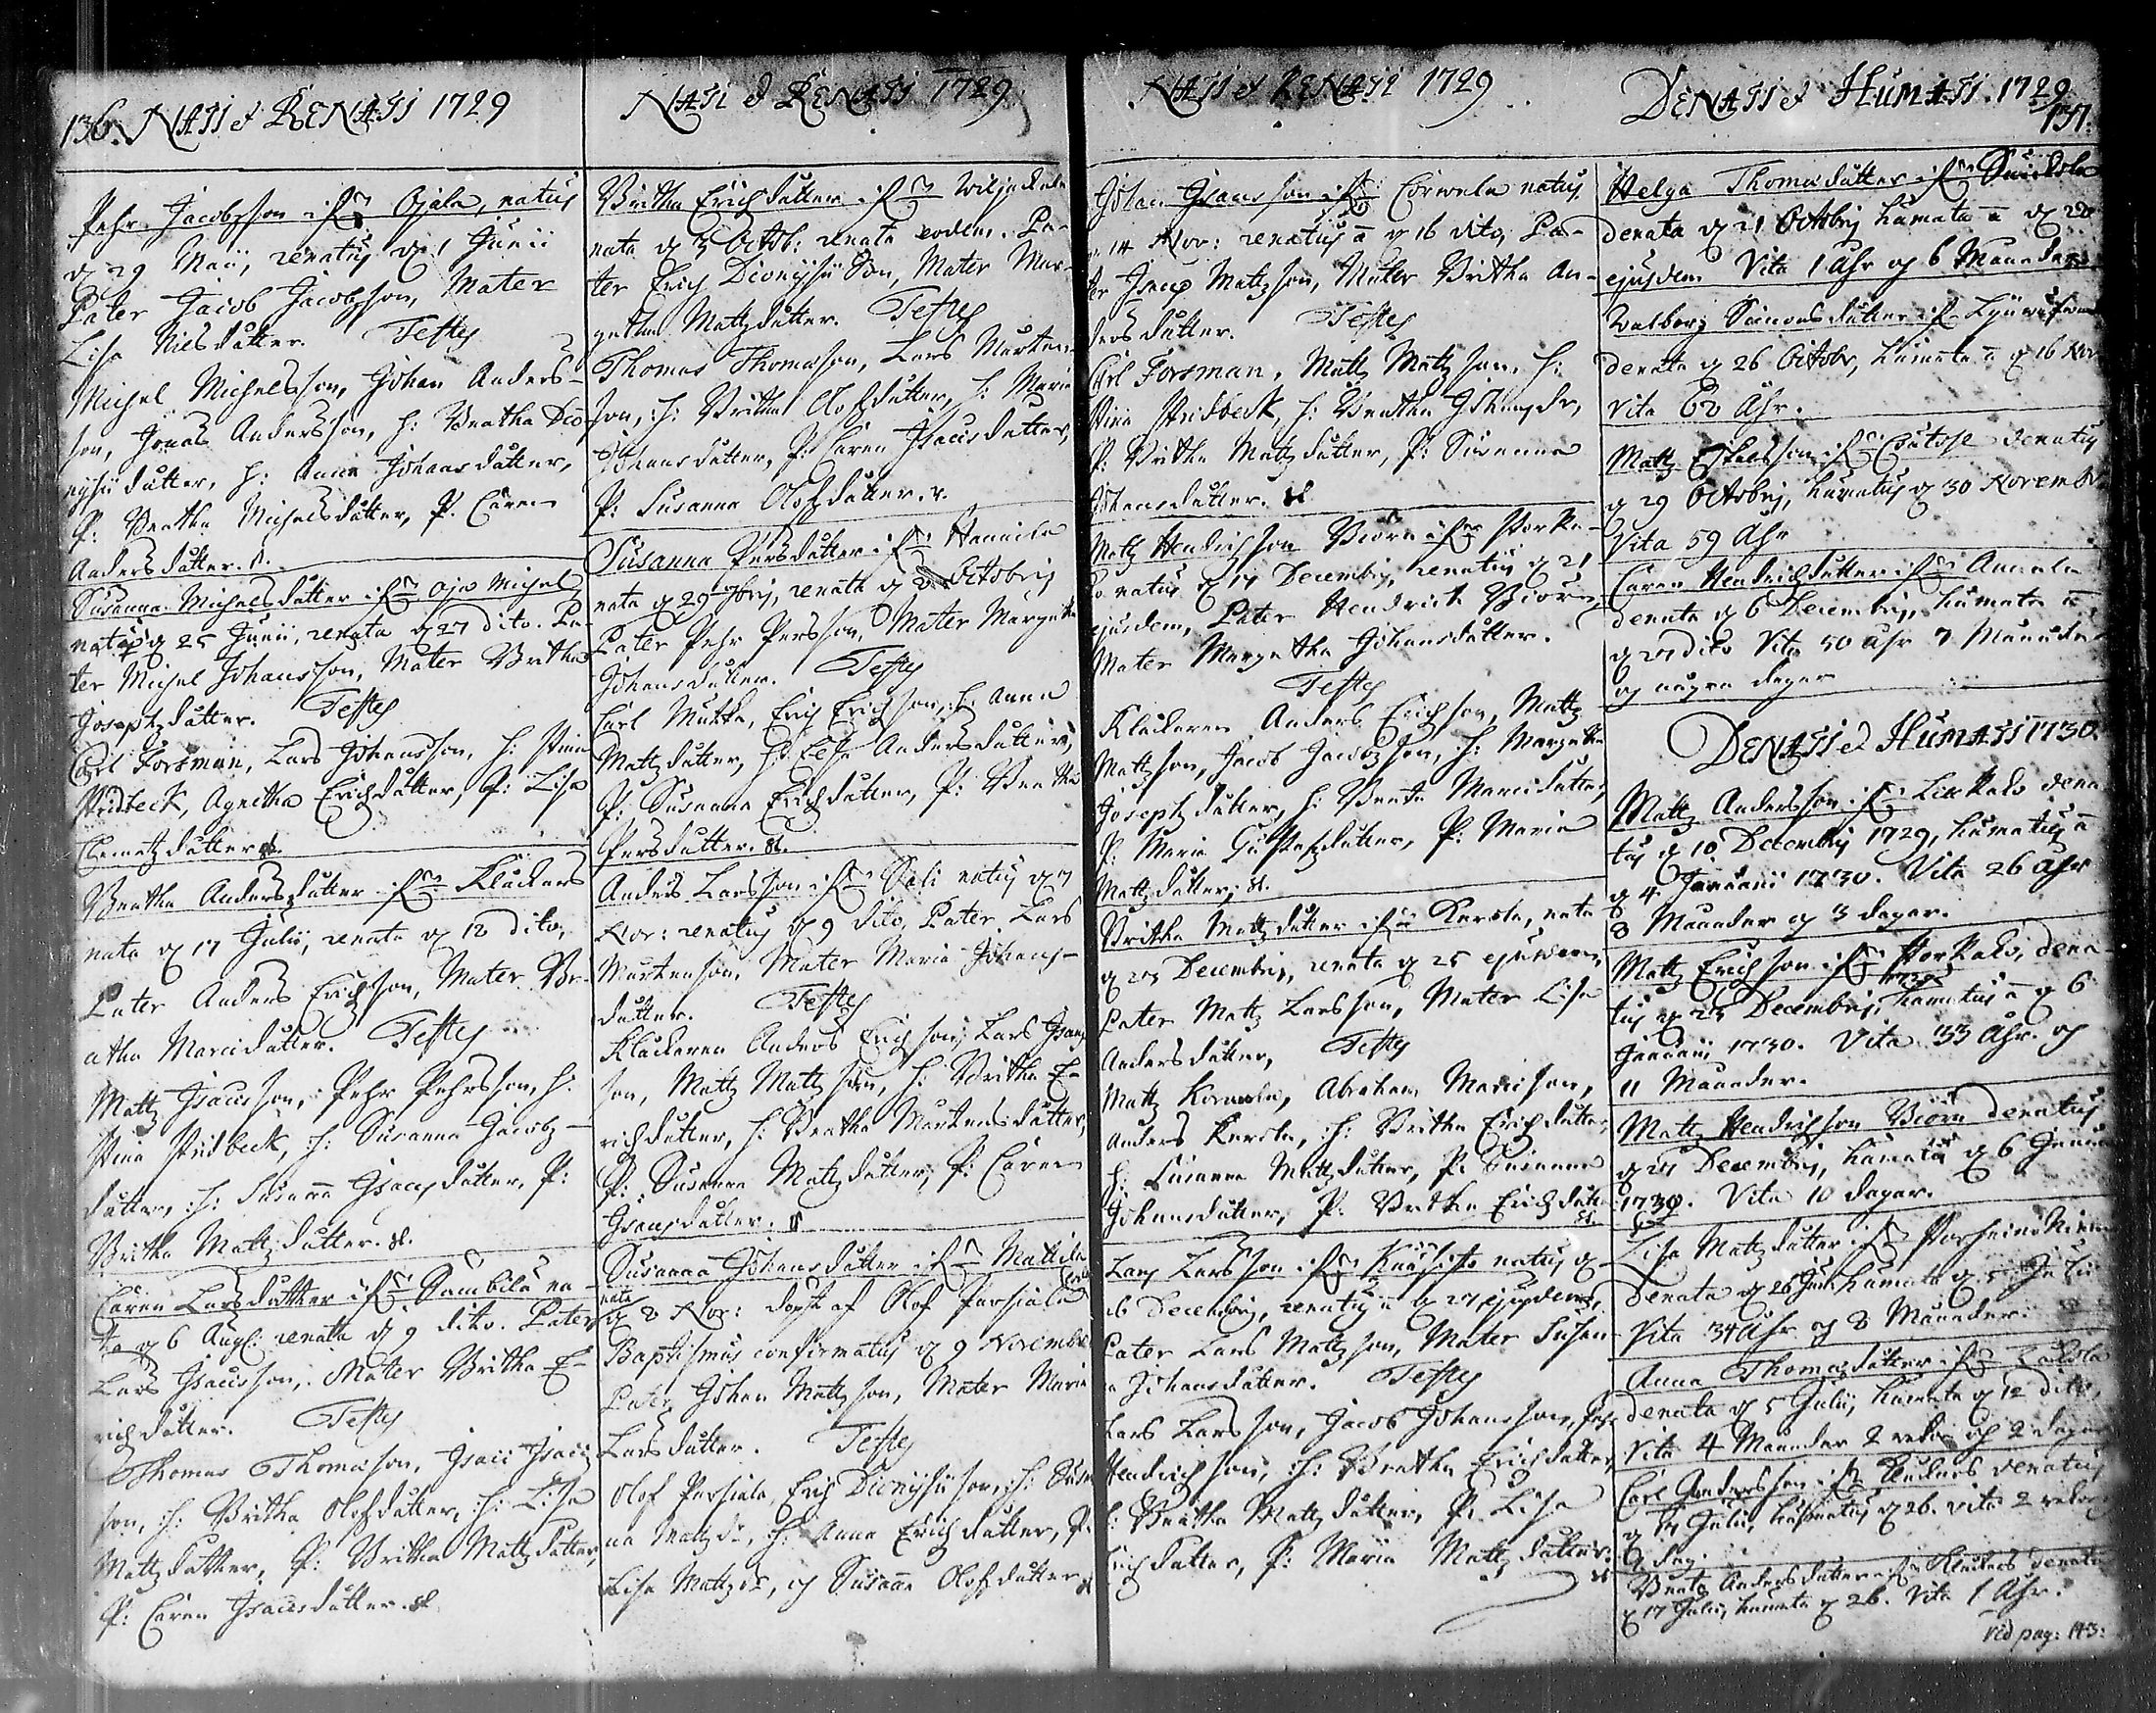 136. NATI et RENATI 1729
Pehr Jacobsson ifrån Ojala, natus
d 29 Maii, renatus d 1 Junii
Pater Jacob Jacobsson, Mater
Lisa Nilsdatter. Testes
Michel Michelsson, Johan Anders-
son, Jonas Andersson, h: Beatha Dio
nysii datter, h: Anna Johansdatter,
P: Beatha Michelsdatter, P. Caren
Andersdatter.
Susanna Michelsdatter ifrån Oja Michel
nata d 25 Junii, renata d 27 dito. Pa-
ter Michel Johansson, Mater Britha
Josephsdatter. Testes
Carl Forsman, Lars Johansson, h: Stina
Stridbeck, Agnetha Erichsdatter, P: Lisa
Clemetzdatter
Beatha Andersdatter ifrån Klåckars
nata d 17 Julii, renata d 18 dito,
Pater Anders Erichsson, Mater Be-
atha Marcidatter. Testes
Mattz Isacsson, Pehr Pehrsson, h:
Stina Stridbeck, h: Susanna Jacobs-
datter, h: Susanna Isacsdatter, P:
Britha Mattzdatter.
Caren Larsdatter ifrån Sambila na-
ta d 6 Aug: renata d 9 dito. Pater
Lars Isacsson, Mater Britha E-
richsdatter. Testes
Thomas Thomasson, Isac Isacs
son, h: Britha Olofsdatter, h: Lisa
Mattzdatter, P: Britha Mattzdatter,
P: Caren Isacsdatter.
NATI et RENATI 1729
Britha Erichsdatter ifrån Wiljackala
nata d 5 Octob: renata eodem. Pa-
ter Erich Dionysii Son, Mater Mar-
getha Mattzdatter. Testes
Thomas Thomasson, Lars Mårtens-
son, h: Britha Olofsdatter, h: Maria
Johansdatter, P: Caren Isacsdatter,
P: Susanna Olofsdatter.
Susanna Persdatter ifrån Hannila
nata d 29 7bris, renata d Octobris
Pater Pehr Persson, Mater Margetha
Johansdatter. Testes
Carl Mukka, Erich Erichsson, h: Anna
Mattzdatter, h: Lisa Andersdatter,
P: Susanna Erichsdatter, P: Beatha
Persdatter.
Anders Larsson ifrån Sali natus d 7
Nov: renatus d 9 dito, Pater Lars
Mårtensson, Mater Maria Johans-
datter. Testes
Klåckaren Anders Erichsson, Lars Isacs
son, Mattz Mattzson, h: Britha E-
richsdatter, h: Beatha Mårtensdatter,
P: Susanna Mattzdatter, P: Caren
Isacsdatter.
Susanna Johansdatter ifrån Mattila
nata
d 8 Nov: döpt af Olof Parsiala
Baptismus confirmatus d 9 Novembr
Pater Johan Mattzson, Mater Maria
Larsdatter. Testes
Olof Parsiala, Erich Dionysii son, h: Susan
na Mattzdr, h: Anna Erichsdatter, P.
Lisa Mattzdr, og Susanna Olofsdatter
NATI et RENATI 1729
Johan Isacsson ifrån Corwala natus
d 14 Nov: renatus d 16 dito, Pa-
ter Isac Mattzson, Mater Britha An-
dersdatter. Testes
Carl Forsman, Mattz Mattzson, h:
Stina Stridbeck, h: Beatha Johansdr,
P: Britha Mattzdatter, P: Susanna
Johansdatter.
Mattz Hendrichsson Biörn ifrån Porka-
la natus d 17 Decembris, renatus d 21
ejusdem, Pater Hendrich Biörn,
Mater Margetha Johansdatter.
Testes
Klåckaren Anders Erichsson, Mattz
Mattzson, Jacob Jacobsson, h: Margetha
Josephsdatter, h: Beata Marcidatter,
P: Maria Gustafsdatter, P: Maria
Mattzdatter,
Britha Mattzdatter ifrån Kerola, nata
d 23 Decembris, renata d 25 ejusdem,
Pater Mattz Larsson, Mater Lisa
Andersdatter, Testes
Mattz Korwala, Abraham Marcison,
Anders Kerola, h: Britha Erichsdatter,
h: Susanna Mattzdatter, P: Susanna
Johansdatter, P: Britha Erichsdatter
Lars Larsson ifrån Kauhisto natus d
26 Decembris, renatus d 27 ejusdem,
Pater Lars Mattzson, Mater Susan-
na Johansdatter. Testes
Lars Larsson, Jacob Johansson,
Hendrichsson, h: Beatha Erichsdatter,
h: Beatha Mattzdatter, P: Lisa
Erichsdatter, P: Maria Mattzdatter.
DENATI et HUMATI 1729
137.
Helga Thomasdatter ifrån
denata d 21 Octobris humata d 26
ejusdem Vita 1 Åhr og 6 Maander
Walborg Simonsdatter ifrån
denata d 26 Octobr, humata d 16 Nov
Vita 62 Åhr.
Mattz Eskelsson ifrån denatus
d 29 Octobris, humatus d 30 Novemb
Vita 59 Åhr
Caren Hendrichsdatter ifrån Annala
denata d 6 Decembris, humata
d 27 dito Vita 50 Åhr 7 Maander
og några dagar
DENATI et HUMATI 1730.
Mattz Andersson ifrån dena
tus d 10 Decembris 1729, humatus
d 4 Januarii 1730. Vita 26 Åhr
8 Maander og 3 dagar.
Mattz Erichsson ifrån dena
tus d 23 Decembris, humatus d 6
Januarii 1730. Vita 33 Åhr og
11 Maander.
Mattz Hendrichsson Biörn denatus
d 27 Decembris, humatus d 6 Januar
1730. Vita 10 dagar.
Lisa Mattzdatter ifrån
Denata d 26 Junii humata d 5 Julii
Vita 34 Åhr og 8 Maander.
Anna Thomasdatter ifrån
Denata d 5 Julii, humata d 12 dito,
Vita 4 Maander 2 vekor og 2 dagar
Carl Andersson ifrån Klockars denatus
d Julii, humatus d 26. vita 2 vekor
dag.
Beata Andersdatter ifrån Klockars denata
d 17 Julii, humata d 26. Vita 1 Åhr.
vid pag: 143: